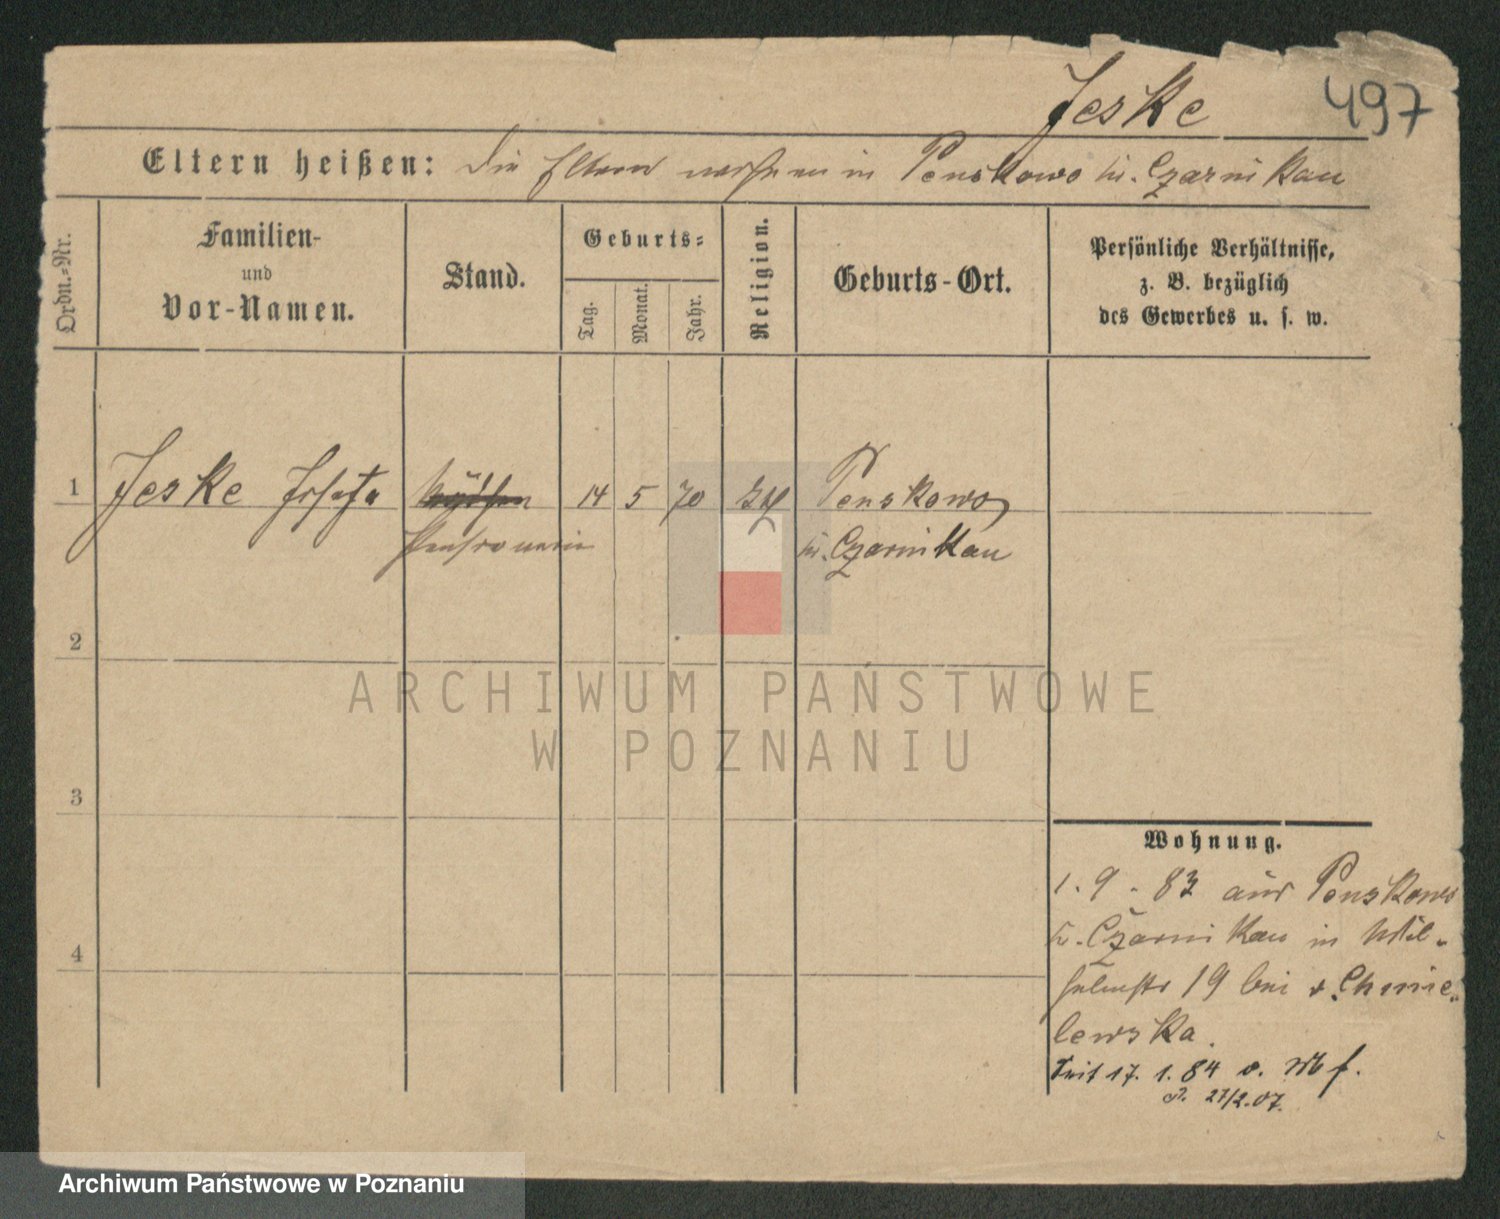 Jeske 497
Eltern heißen: Die Eltern wohnen in Penskowo bei Czarnikau
Ordn.=Nr.
Familien-
und
Vor-Namen.
Stand.
Geburts=
Tag.
Monat.
Jahr.
Religion.
Geburts-Ort.
Persönliche Verhältnisse,
z. B. bezüglich
des Gewerbes u. s. w.
1 Jeske Josefa 14 5 70 Penskowo
Pensionärin bei Czarnikau
2
ARCHIWUM PAŃSTWOWE
W POZNANIU
3
4
Wohnung.
1. 9. 83 aus Penskowo
b. Czarnikau in Wil-
helmstr 19 bei v. Chmie-
lewska.
Seit 17. 1. 84
27/2.07.
Archiwum Państwowe w Poznaniu